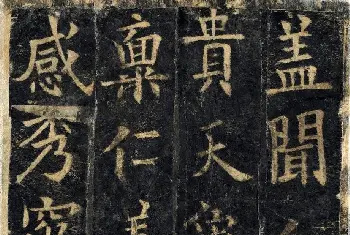 盖聞
貴天
稟仁
感秀